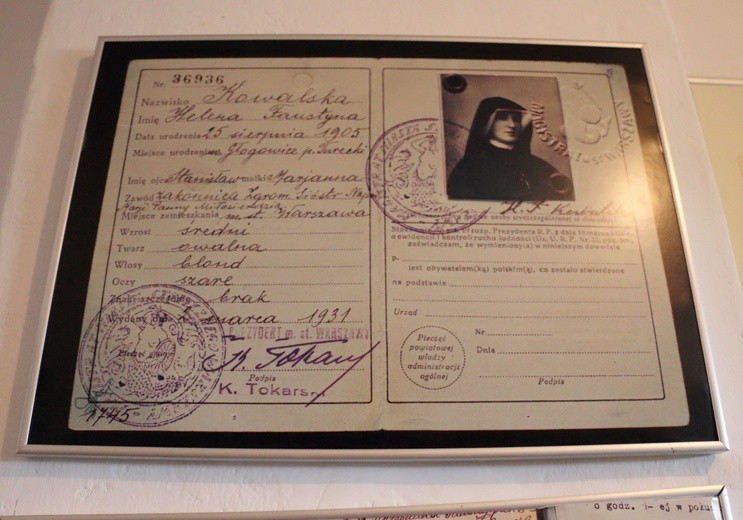 Nr. 36936
Nazwisko Kowalska
Imię Helena Faustyna
Data urodzenia 25 sierpnia 1905
Miejsce urodzenia Głogowice p. Turecki
Imię ojca Stanisław matki Marjanna
Zawód zakonnica Zgrom. Sióstr Naj
Marji Panny Miłosierdzia
Miejsce zamieszkania m. st. Warszawa
Wzrost średni
Twarz owalna
Włosy blond
Oczy szare
Znaki szczególne brak
Wydany dnia marca 1931
PREZYDENT m. st. WARSZAWY
Pieczęć
Podpis
K. Tokars
1745
MAGISTRAT m. st. WARSZAWY
H. F. Kowalska
Stosownie do rozp. Prezydenta R. P. z dnia 16 marca
o ewidencji i kontroli ruchu ludności (Dz. U. R. P. Nr. 32, poz. 309),
zaświadczam, że wymieniony(a) w niniejszym dowodzie
p.
jest obywatelem(ką) polskim(ą), co zostało stwierdzone
na podstawie
Urząd
Pieczęć
powiatowej
władzy
administracji
ogólnej
Nr.
Dnia
Podpis
o godz. ej w połu